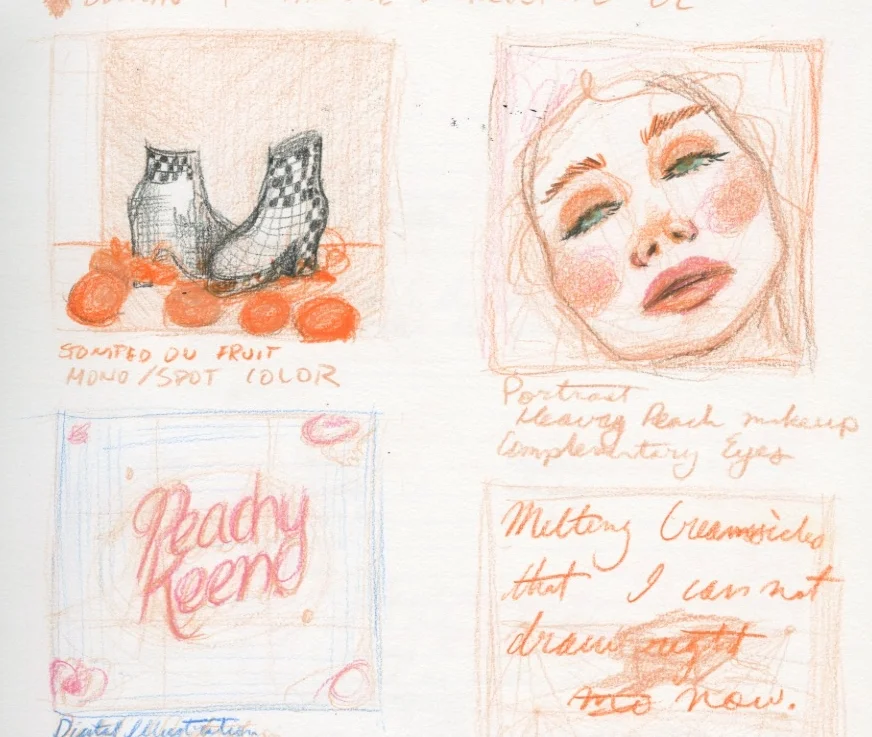 FRUIT
MONO/SPOT COLOR
Portrait
Heavy Peach makeup
Complementary Eyes
Peachy
Keeno
Melting Creamsicles
that I can not
draw right
now.
Digital Illustration